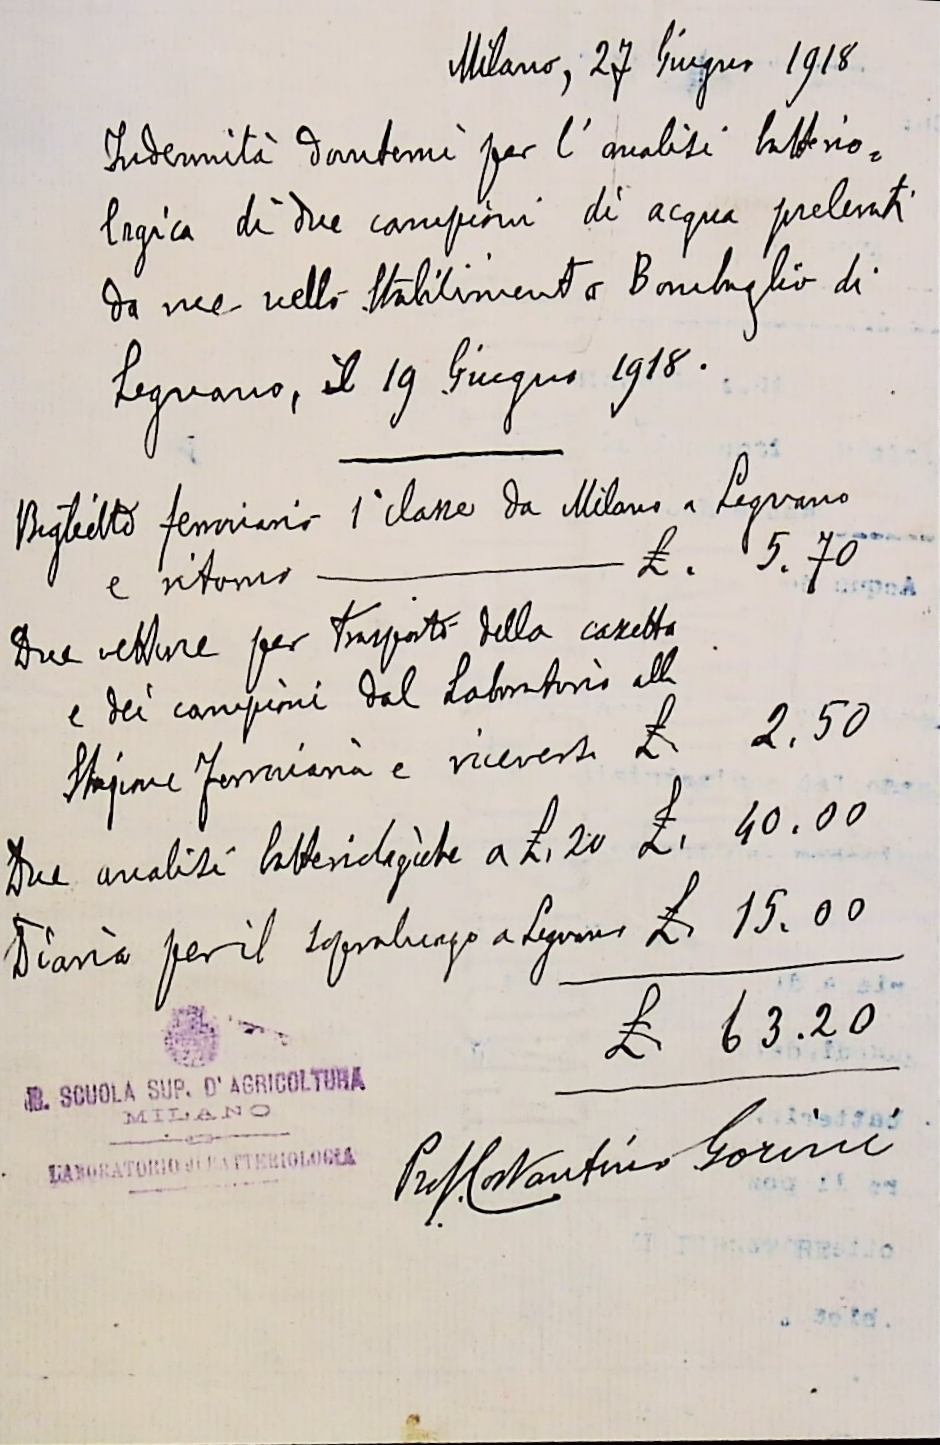 Milano, 27 Giugno 1918
Indennità dovutemi per l'analisi batterio=
logica di due campioni di acqua prelevati
da me nello Stabilimento Bombaglio di
Legnano, il 19 Giugno 1918.
Biglietto ferroviario 1ª classe da Milano a Legnano
e ritorno £. 5.70
Due vetture per trasporto della cassetta
e dei campioni dal Laboratorio alla
Stazione Ferroviaria e viceversa £. 2.50
Due analisi batteriologiche a £. 20 £. 40.00
Diaria per il sopraluogo a Legnano £. 15.00
£. 63.20
R. SCUOLA SUP. D'AGRICOLTURA
MILANO
LABORATORIO di BATTERIOLOGIA
Prof. Costantino Gorini